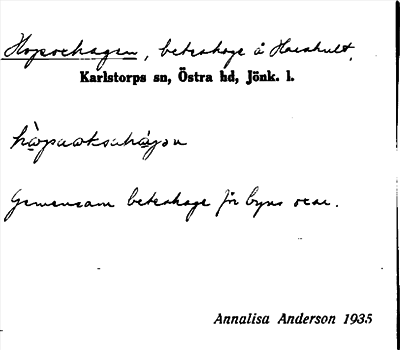 Hopoxhagen, beteshage å Harahult,
Karlstorps sn, Östra hd, Jönk. l.
Gemensam beteshage för byns oxar.
Annalisa Anderson 1935